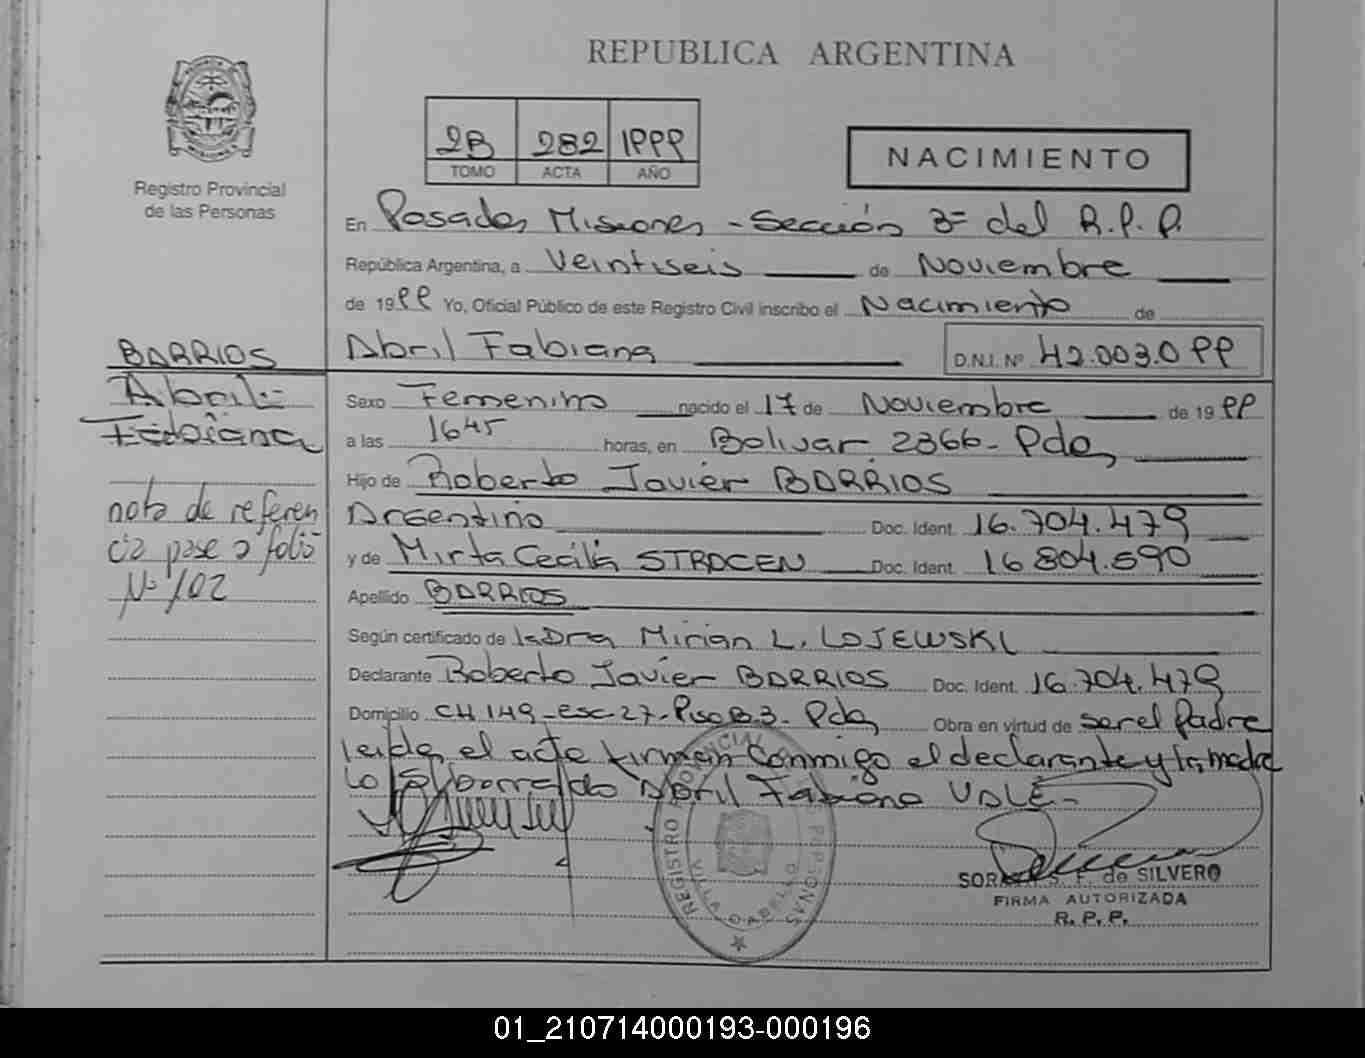 REPUBLICA ARGENTINA
Registro Provincial
de las Personas
2B 282 1999
TOMO ACTA AÑO
NACIMIENTO
En Posadas Misiones - Sección 3ª del R.P.P.
República Argentina, a Veintiseis de Noviembre
de 1999 Yo, Oficial Público de este Registro Civil inscribo el Nacimiento de
Abril Fabiana D.N.I. Nº 42.003.099
BARRIOS
Abril
Fabiana
nota de referen
cia pase a folio
Nº 102
Sexo Femenino nacido el 17 de Noviembre de 1999
a las 1645 horas, en Bolivar 2366 - Pdas
Hijo de Roberto Javier BARRIOS
Argentino Doc. Ident. 16.704.479
y de Mirta Cecilia STROCEN Doc. Ident. 16804.590
Apellido BARRIOS
Según certificado de la Dra Mirian L. LOJEWSKI
Declarante Roberto Javier BARRIOS Doc. Ident. 16.704.479
Domicilio CH 149 - esc - 27 - Piso B. 3 - Pdas Obra en virtud de ser el padre
Leida el acta firman conmigo el declarante y la madre
Lo s/borrado Abril Fabiana VALE -
REGISTRO PROVINCIAL DE LAS PERSONAS
VILLA CABELLO
de SILVERO
FIRMA AUTORIZADA
R. P. P.
01_210714000193-000196